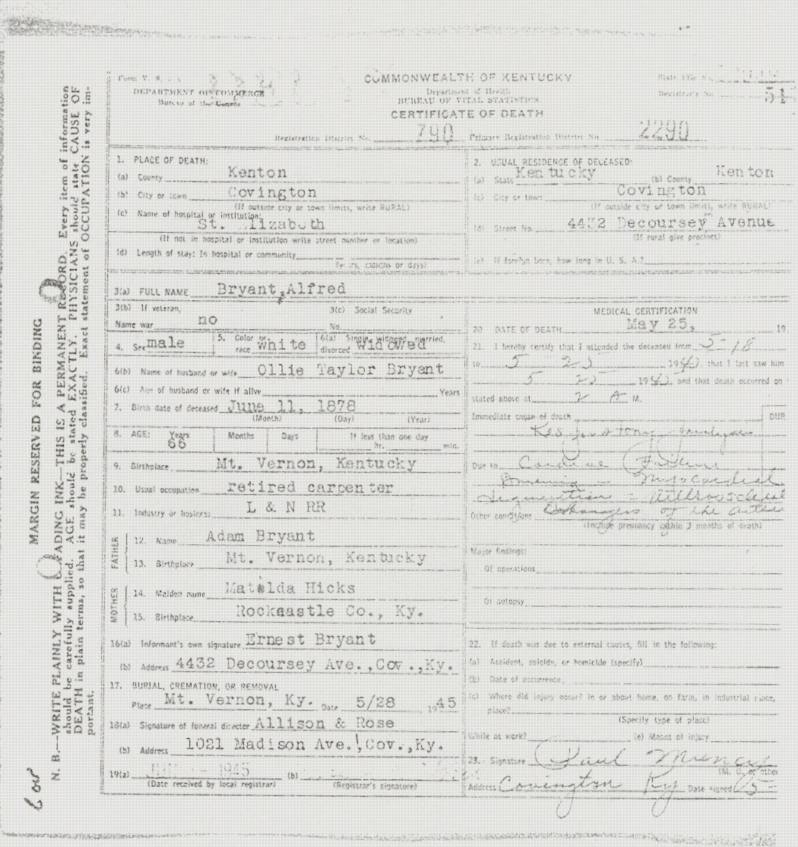 COMMONWEALTH OF KENTUCKY
DEPARTMENT OF COMMERCE
Bureau of the Census
Department of Health
BUREAU OF VITAL STATISTICS
CERTIFICATE OF DEATH
Registration District No. 790 Primary Registration District No. 2290
MARGIN RESERVED FOR BINDING
N. B.—WRITE PLAINLY WITH FADING INK—THIS IS A PERMANENT RECORD. Every item of information
should be carefully supplied. AGE should be stated EXACTLY. PHYSICIANS should state CAUSE OF
DEATH in plain terms, so that it may be properly classified. Exact statement of OCCUPATION is very im-
portant.
1. PLACE OF DEATH:
(a) County Kenton
(b) City or town Covington
(If outside city or town limits, write RURAL)
(c) Name of hospital or institution:
St. Elizabeth
(If not in hospital or institution write street number or location)
(d) Length of stay: In hospital or community
(years, months or days)
2. USUAL RESIDENCE OF DECEASED:
(a) State Kentucky (b) County Kenton
(c) City or town Covington
(If outside city or town limits, write RURAL)
(d) Street No. 4432 Decoursey Avenue
(If rural give precinct)
(e) If foreign born, how long in U. S. A.?
3(a) FULL NAME Bryant, Alfred
3(b) If veteran,
Name war no
3(c) Social Security
No.
4. Sex male 5. Color or race white 6(a) Single, widowed, married, divorced widowed
6(b) Name of husband or wife Ollie Taylor Bryant
6(c) Age of husband or wife if alive Years
7. Birth date of deceased June 11, 1878
(Month) (Day) (Year)
8. AGE: Years 66 Months Days If less than one day
hr. min.
9. Birthplace Mt. Vernon, Kentucky
10. Usual occupation retired carpenter
11. Industry or business L & N RR
FATHER
12. Name Adam Bryant
13. Birthplace Mt. Vernon, Kentucky
MOTHER
14. Maiden name Matilda Hicks
15. Birthplace Rockcastle Co., Ky.
16(a) Informant's own signature Ernest Bryant
(b) Address 4432 Decoursey Ave., Cov., Ky.
17. BURIAL, CREMATION, OR REMOVAL
Place Mt. Vernon, Ky. Date 5/28 1945
18(a) Signature of funeral director Allison & Rose
(b) Address 1021 Madison Ave., Cov., Ky.
19(a) 1945 (b)
(Date received by local registrar) (Registrar's signature)
MEDICAL CERTIFICATION
20. DATE OF DEATH May 25, 19
21. I hereby certify that I attended the deceased from 5-18
to 5 25 1945, that I last saw him
5 25 1945, and that death occurred on
stated above at 2 A M.
Immediate cause of death DUR
Respiratory
Due to
Other conditions of the
(Include pregnancy within 3 months of death)
Major findings:
Of operations
Of autopsy
22. If death was due to external causes, fill in the following:
(a) Accident, suicide, or homicide (specify)
(b) Date of occurrence
(c) Where did injury occur? In or about home, on farm, in industrial place,
place?
(Specify type of place)
While at work? (e) Means of injury
23. Signature Paul
Address Covington Ky Date signed 5-